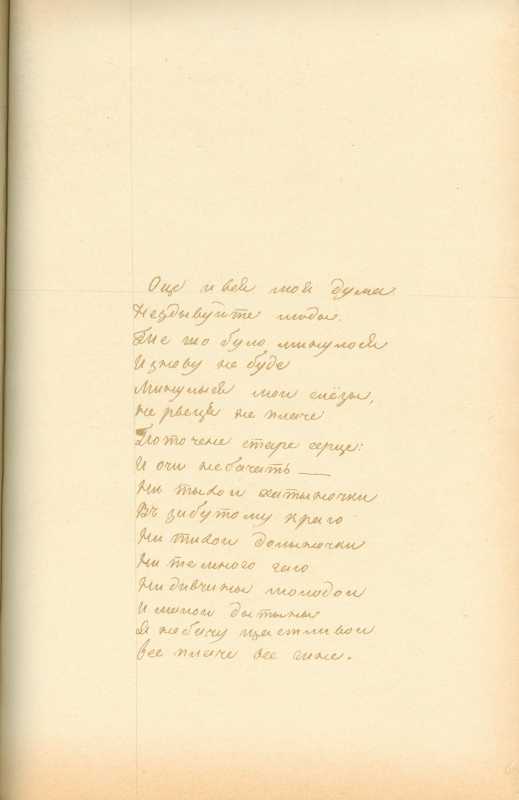 Оце и вся моя дума
Нездывуйте люды.
Бие що було минулося
И знову не буде
Минулыся мои слёзы,
не рвеця не плаче
Поточене старе серце:
И очи небачить —
Ни тыхои хатыночки
Въ забутому краю
Ни тихои долыночки
Ни темного гаю
Ни дивчины молодои
И малои дытыны
Я небачу щастливои
все плаче все гине.